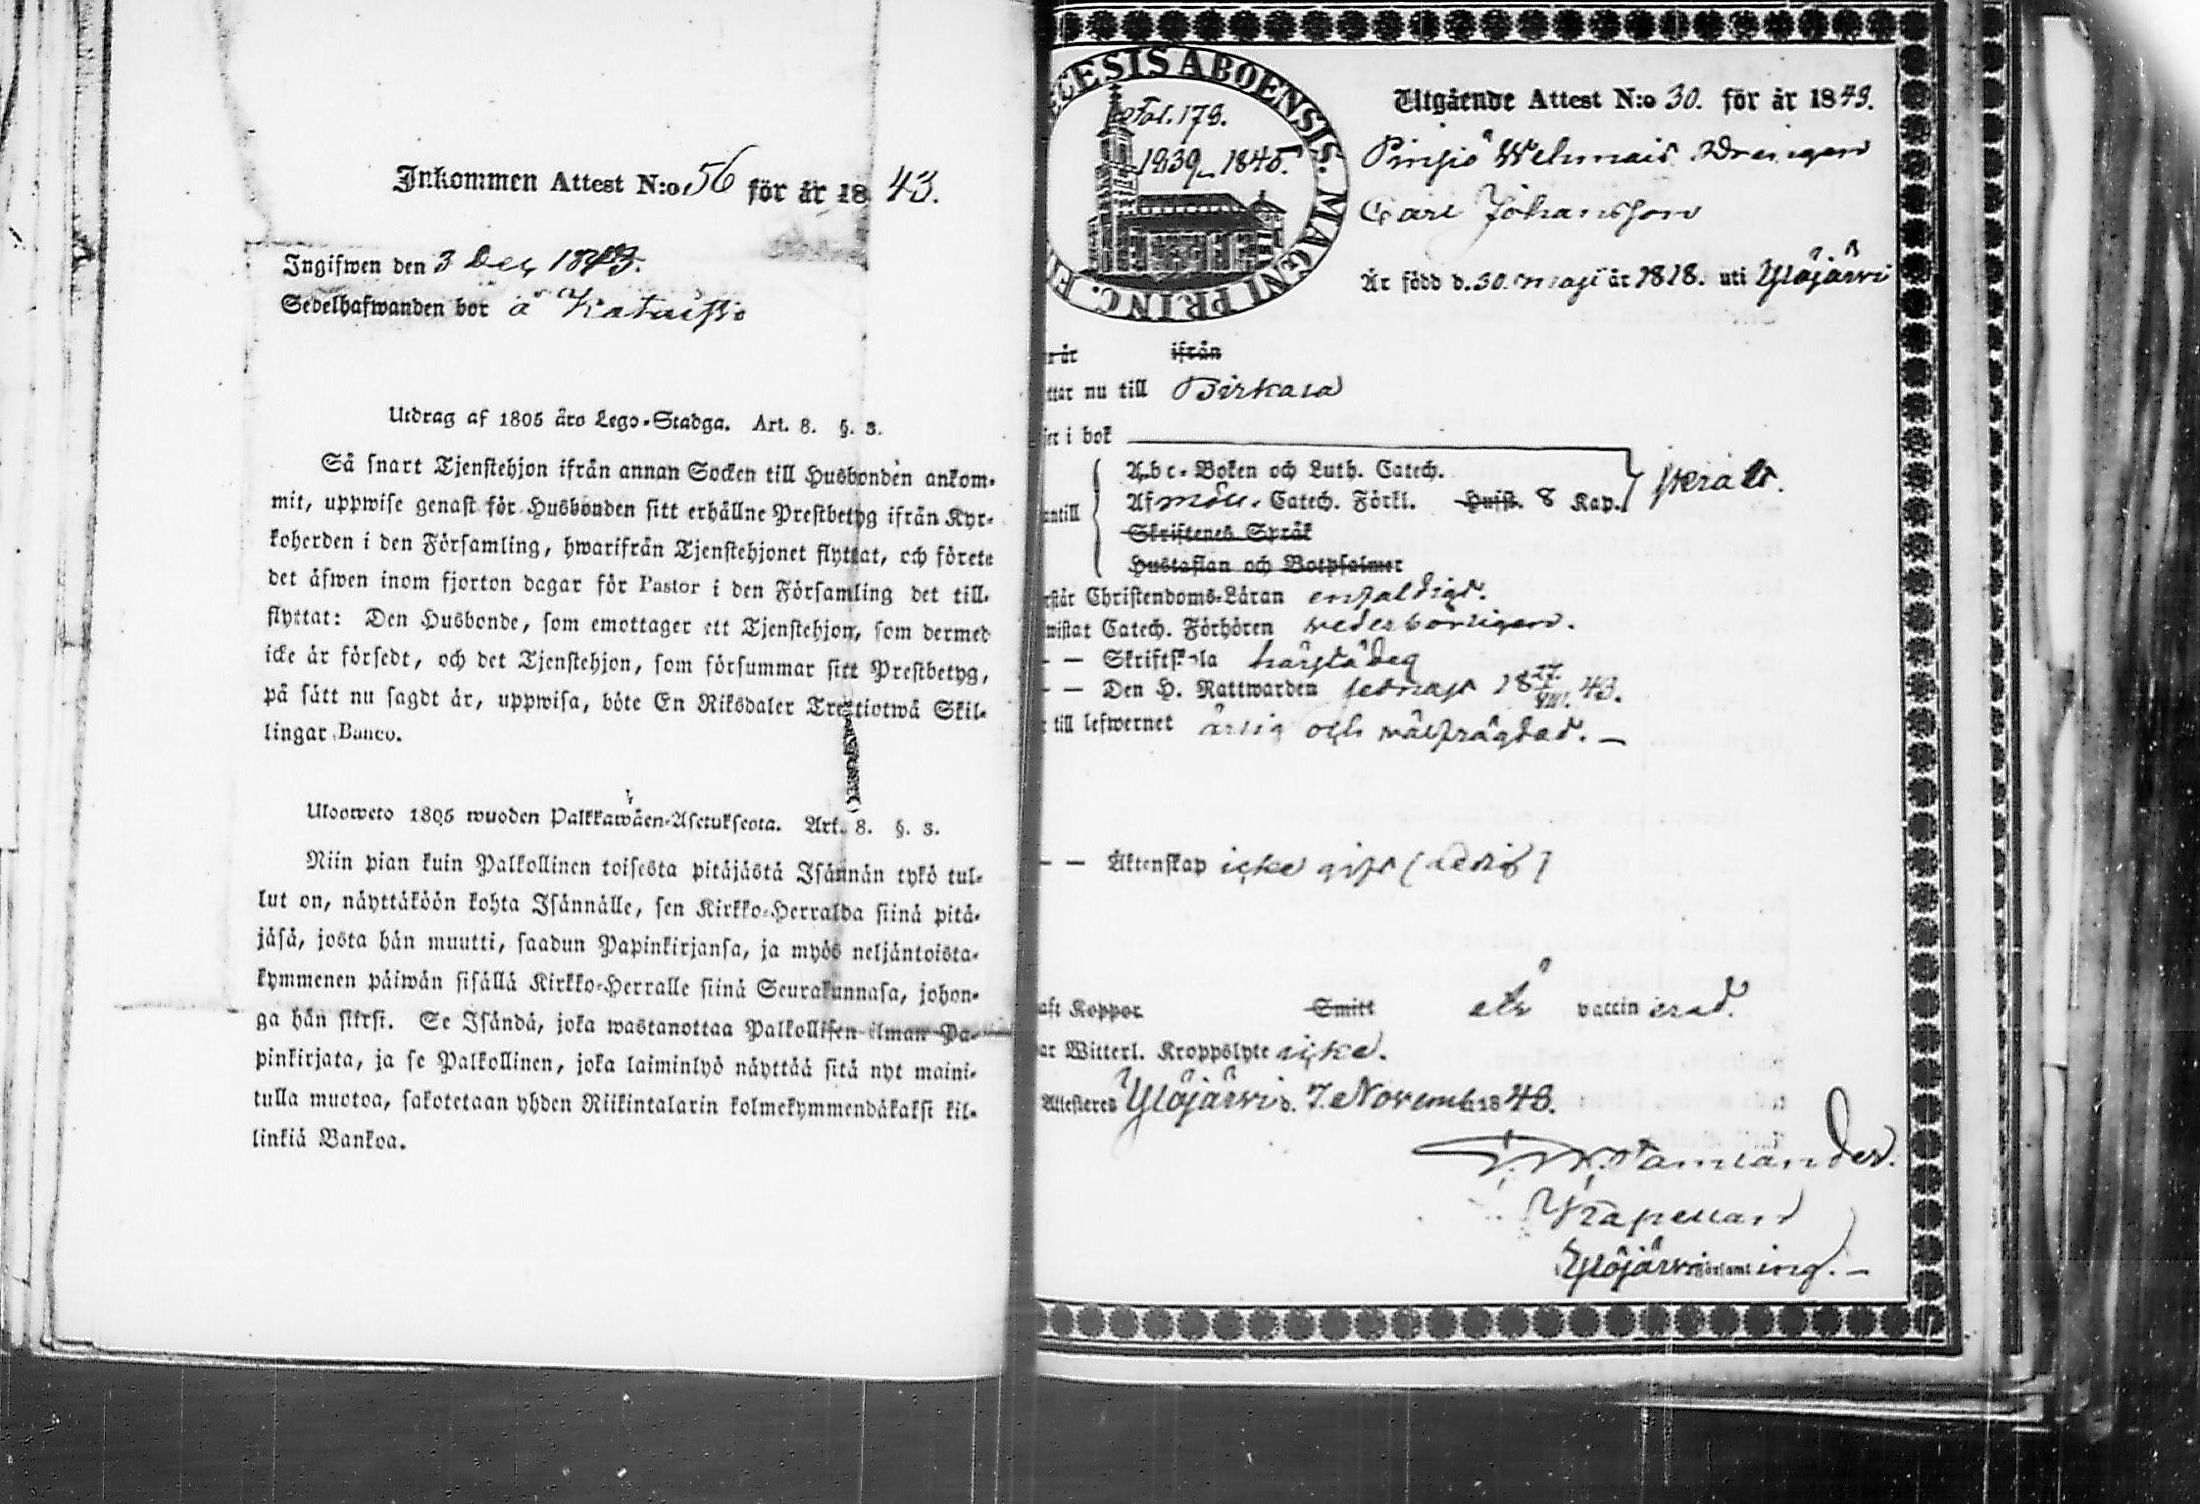 Inkommen Attest N:o 56 för år 1843.
Ingifwen den 3 Dec 1843.
Sedelhafwanden bor å
Utdrag af 1805 års Lego-Stadga. Art. 8. §. 3.
Så snart Tjenstehjon ifrån annan Socken till Husbonden ankom-
mit, uppwise genast för Husbonden sitt erhållne Prestbetyg ifrån Kyr-
koherden i den Församling, hwarifrån Tjenstehjonet flyttat, och förete
det äfwen inom fjorton dagar för Pastor i den Församling det till-
flyttat: Den Husbonde, som emottager ett Tjenstehjon, som dermed
icke är försedt, och det Tjenstehjon, som försummar sitt Prestbetyg,
på sätt nu sagdt är, uppwisa, böte En Riksdaler Trettiotwå Skil-
lingar Banco.
Ulosweto 1805 wuoden Palkkawäen-Asetuksesta. Art. 8. §. 3.
Niin pian kuin Palkollinen toisesta pitäjästä Isännän tykö tul-
lut on, näyttäköön kohta Isännälle, sen Kirkko-Herralda siinä pitä-
jäsä, josta hän muutti, saadun Papinkirjansa, ja myös neljäntoista-
kymmenen päiwän sisällä Kirkko-Herralle siinä Seurakunnasa, johon-
ga hän siirsi. Se Isändä, joka wastanottaa Palkollisen ilman Pa-
pinkirjata, ja se Palkollinen, joka laiminlyö näyttää sitä nyt maini-
tulla muotoa, sakotetaan yhden Riikintalarin kolmekymmendäkaksi kil-
linkiä Bankoa.
CESIS ABOENSIS. MAGNI PRINC. F
Fol. 179.
1839-1845.
Utgående Attest N:o 30. för år 1843.
Pinsiö Drengen
Carl Johansson
Är född d. 30. maji år 1818. uti Ylöjärvi
år ifrån
nu till Birkala
i bok
A,b,c-Boken och Luth. Catech.
Af Catech. Förkl. Husf. 8 Kap. försvarl.
Skriftenes Språk
Hustaflan och Botpsalmer
Christendoms-Läran enfaldigt.
Catech. Förhören vederbörligen.
— — Skriftskola härstädes
— — Den H. Nattwarden senast 18 43.
till lefwernet ärlig och välfrägdad. —
— — Äktenskap icke gift (ledig)
Koppor Smitt är vaccinerad.
Witterl. Kroppslyte icke.
Attesteres Ylöjärvi d. 7. Novemb. 1843.
Tamlander.
Kapellan
Ylöjärvi församling. —